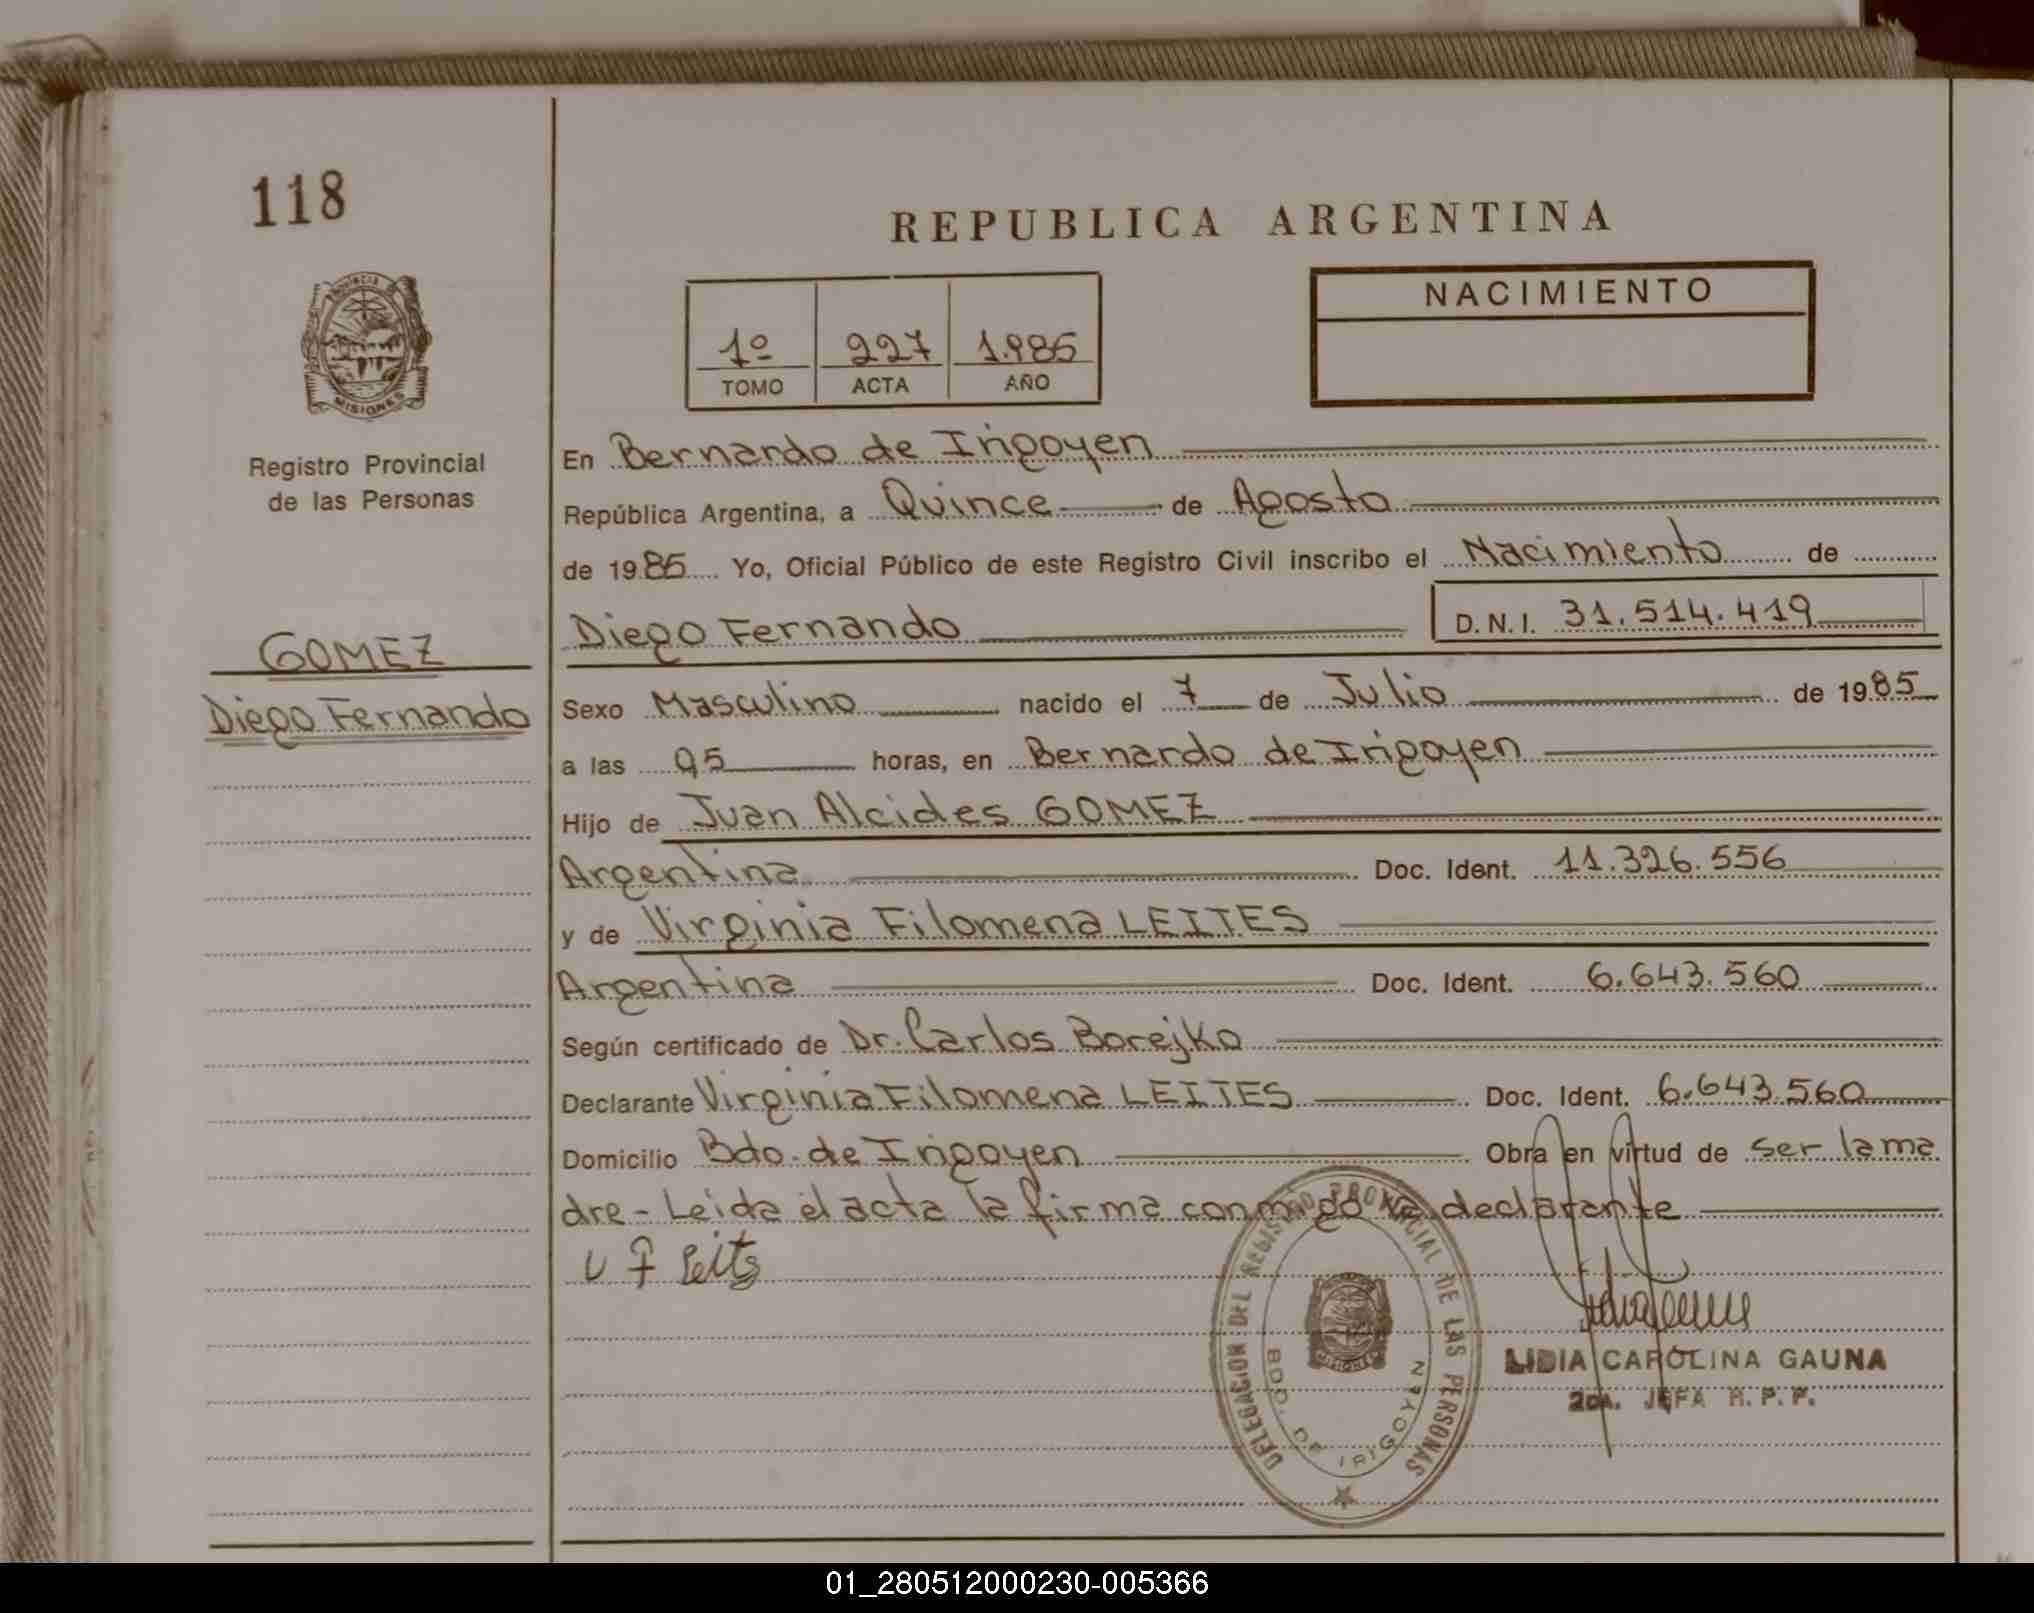 118
REPUBLICA ARGENTINA
NACIMIENTO
1º 227 1.985
TOMO ACTA AÑO
PROVINCIA
MISIONES
Registro Provincial
de las Personas
GOMEZ
Diego Fernando
En Bernardo de Irigoyen
República Argentina, a Quince de Agosto
de 1985 Yo, Oficial Público de este Registro Civil inscribo el Nacimiento de
Diego Fernando D.N.I. 31.514.419
Sexo Masculino nacido el 7 de Julio de 1985
a las 05 horas, en Bernardo de Irigoyen
Hijo de Juan Alcides GOMEZ
Argentina Doc. Ident. 11.326.556
y de Virginia Filomena LEITES
Argentina Doc. Ident. 6.643.560
Según certificado de Dr. Carlos Borejko
Declarante Virginia Filomena LEITES Doc. Ident. 6.643.560
Domicilio Bdo. de Irigoyen Obra en virtud de ser la ma
dre - Leida el acta la firma conmigo la declarante
V F Leites
DELEGACION DEL REGISTRO PROVINCIAL DE LAS PERSONAS
BDO. DE IRIGOYEN
LIDIA CAROLINA GAUNA
2da. JEFA R.P.P.
01_280512000230-005366